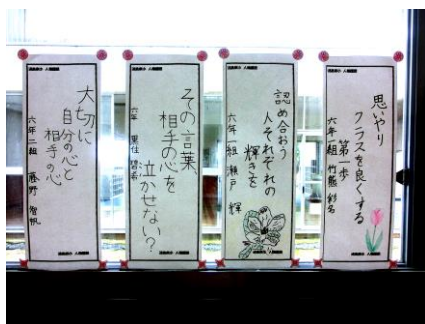 思いやり
クラスを良くする
第一歩
六年一組 竹熊 彩名
認め合おう
人それぞれの
輝きを
六年一組 瀬戸 輝
その言葉
相手の心を
泣かせない？
六年
大切に
自分の心と
相手の心
六年二組 藤野 智帆